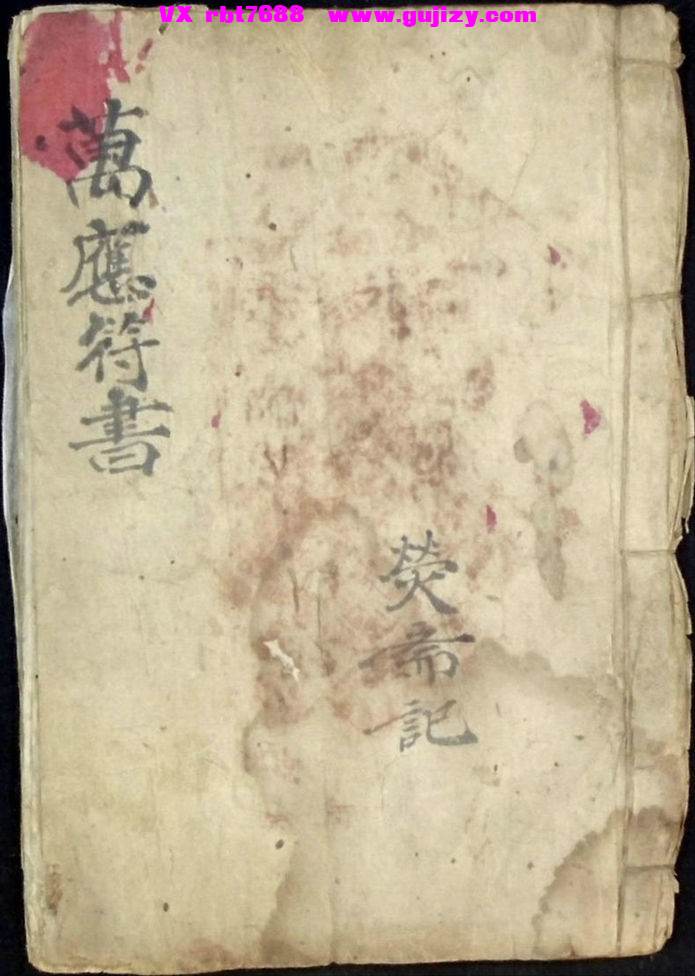 VX rbt7688 www.gujizy.com
萬應符書
熒斋記